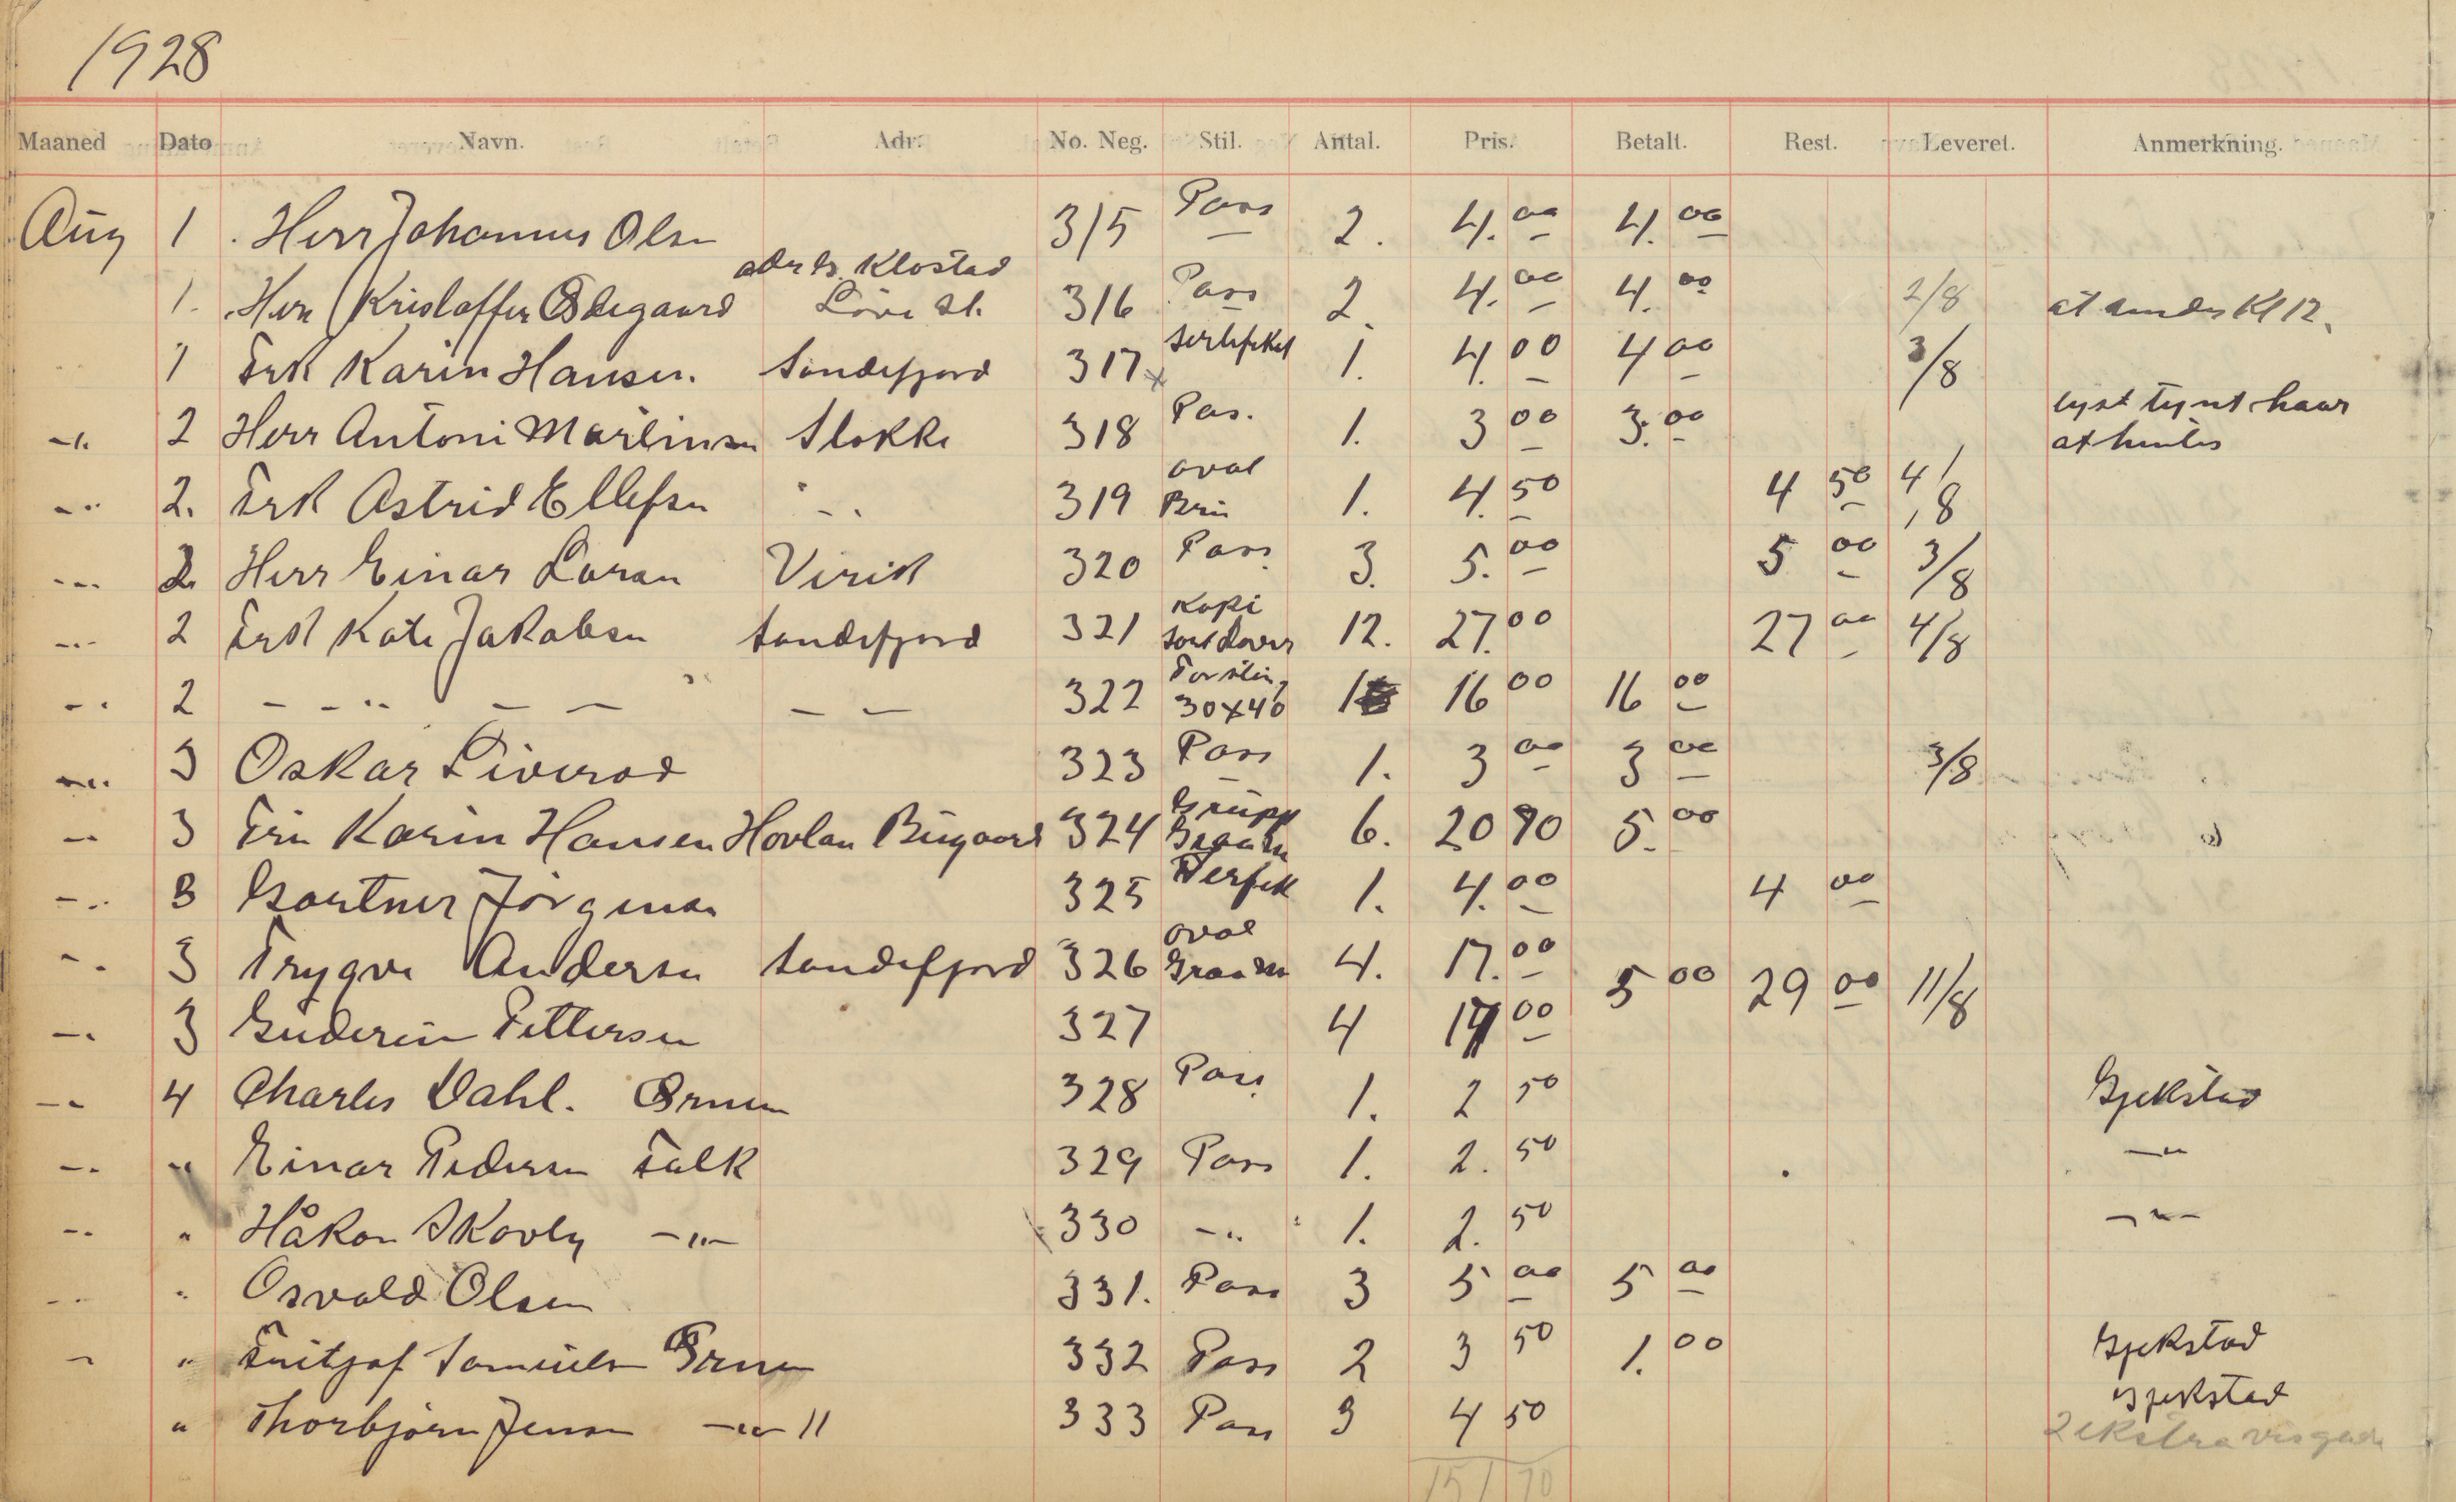 1928
Maaned Dato Navn. Adr. No. Neg. Stil. Antal. Pris. Betalt. Rest. Leveret. Anmerkning.
Aug 1 Herr Johannes Olsen 315 Pass 2. 4.00 4.00
1. Herr Kristoffer Ødegaard adr G. Klostad Löve st. 316 Pass 2. 4.00 4.00 2/8 at sendes Kl 12.
1 Frk Karin Hansen. Sandefjord 317 Sertifikat 1. 4.00 4 00 3/8
-"- 2 Herr Antoni Martinsen Stokke 318 Pas. 1. 3 00 3.00 lyst tynt haar
at hentes
-"- 2. Frk Astrid Ellefsen -"- 319 oval Brun 1. 4.50 4 50 4/8
-"- 2. Herr Einar Larsen Virik 320 Pass 3. 5.00 5 00 3/8
-"- 2 Frk Kate Jakobsen Sandefjord 321 Kopi 12. 27.00 27 00 4/8
-"- 2 - -"- - - - - 322 30x40 1 16 00 16 00
-"- 3 Oskar Liverød 323 Pass 1. 3 00 3 00 3/8
-"- 3 Fru Karin Hansen Hovlan Bugaard 324 Grupp 6. 20 90 5.00
-"- 3 Gartner Jörgensen 325 1. 4.00 4 00
-"- 3 Trygve Andersen Sandefjord 326 oval 4. 17.00 5 00 29 00 11/8
-"- 3 Guderun Pettersen 327 4 17 00
-"- 4 Charles Dahl. Ørnen 328 Pass 1. 2 50 Gjekstad
-"- " Einar Pedersen Falk 329 Pass 1. 2.50 -"-
-"- " Håkon Skovly -"- 330 -"- 1. 2.50 -"-
-"- " Osvald Olsen 331. Pass 3 5 00 5 00
- " Fritjof Samuelsen Ørnen 332 Pass 2 3 50 1.00 Gjekstad
" Thorbjørn Jensen -"- " 333 Pass 3 4 50 Gjekstad
2 ekstra
151 70